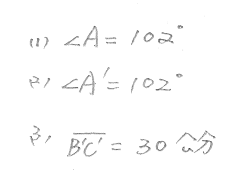 (1) ∠A = 102°
(2) ∠A' = 102°
(3) B'C' = 30 公分